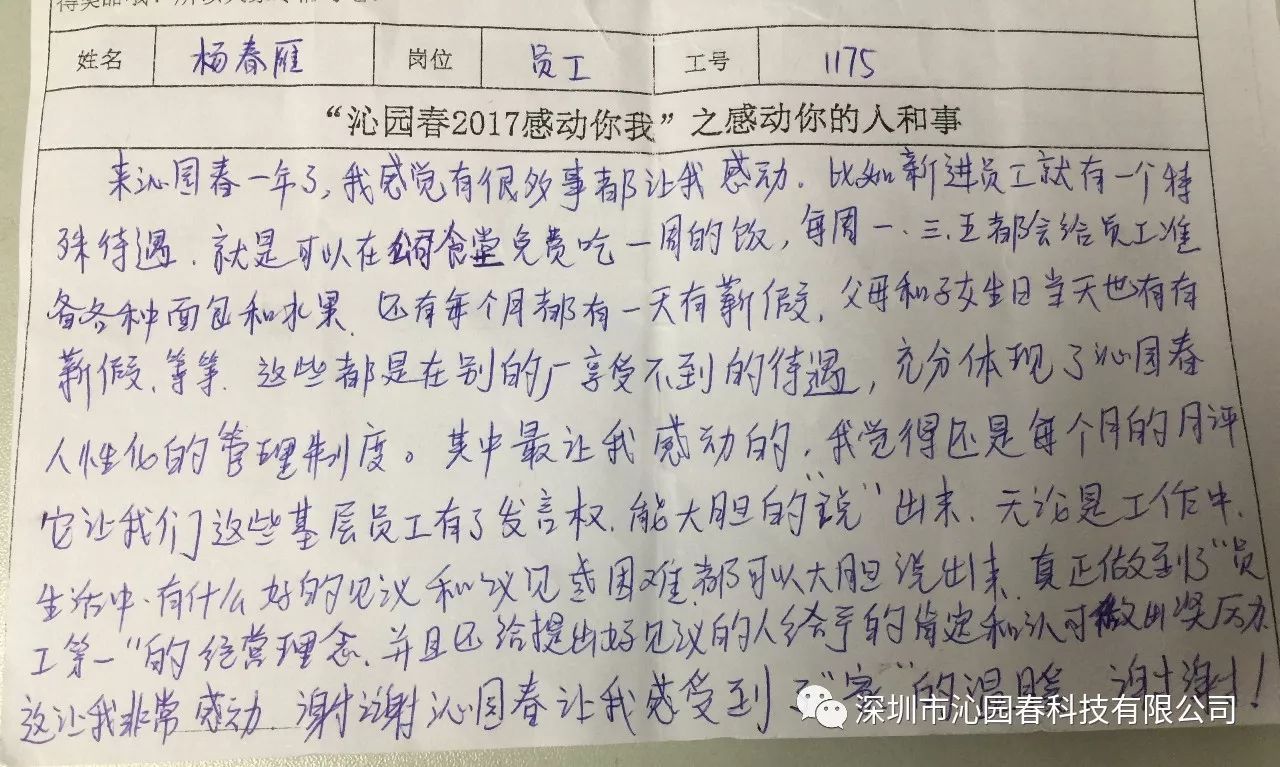 姓名 杨春雁 岗位 员工 工号 1175
“沁园春2017感动你我”之感动你的人和事
来沁园春一年了,我感觉有很多事都让我感动.比如新进员工就有一个特
殊待遇.就是可以在公司食堂免费吃一周的饭,每周一.三.五都会给员工准
备各种面包和水果.还有每个月都有一天有薪假,父母和子女生日当天也有有
薪假.等等.这些都是在别的厂享受不到的待遇,充分体现了沁园春
人性化的管理制度。其中最让我感动的,我觉得还是每个月的月评
它让我们这些基层员工有了发言权.能大胆的“说”出来.无论是工作中.
生活中.有什么好的见议和议见或困难都可以大胆说出来.真正做到了“员
工第一”的经营理念.并且还给提出好见议的人给予的肯定和认可做出奖历
这让我非常感动.谢谢沁园春让我感受到了“家”的温暖.谢谢!
深圳市沁园春科技有限公司